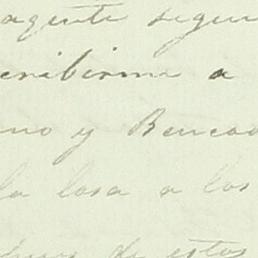 agente segun
cribirme a
no y Bencao
la losa a los
de estos